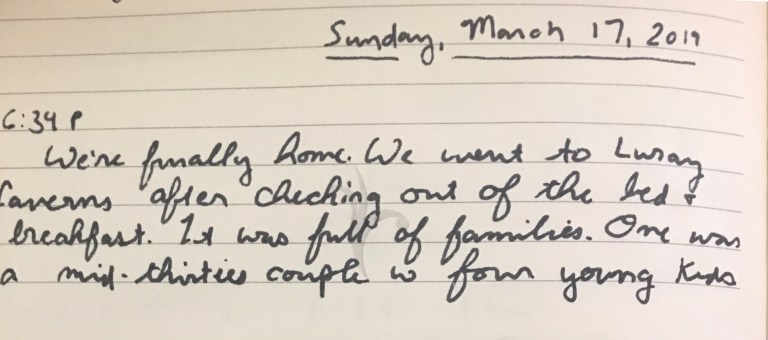 Sunday, March 17, 2019
6:34 P
We're finally home. We went to Luray
Caverns after checking out of the bed &
breakfast. It was full of families. One was
a mid-thirties couple w four young kids